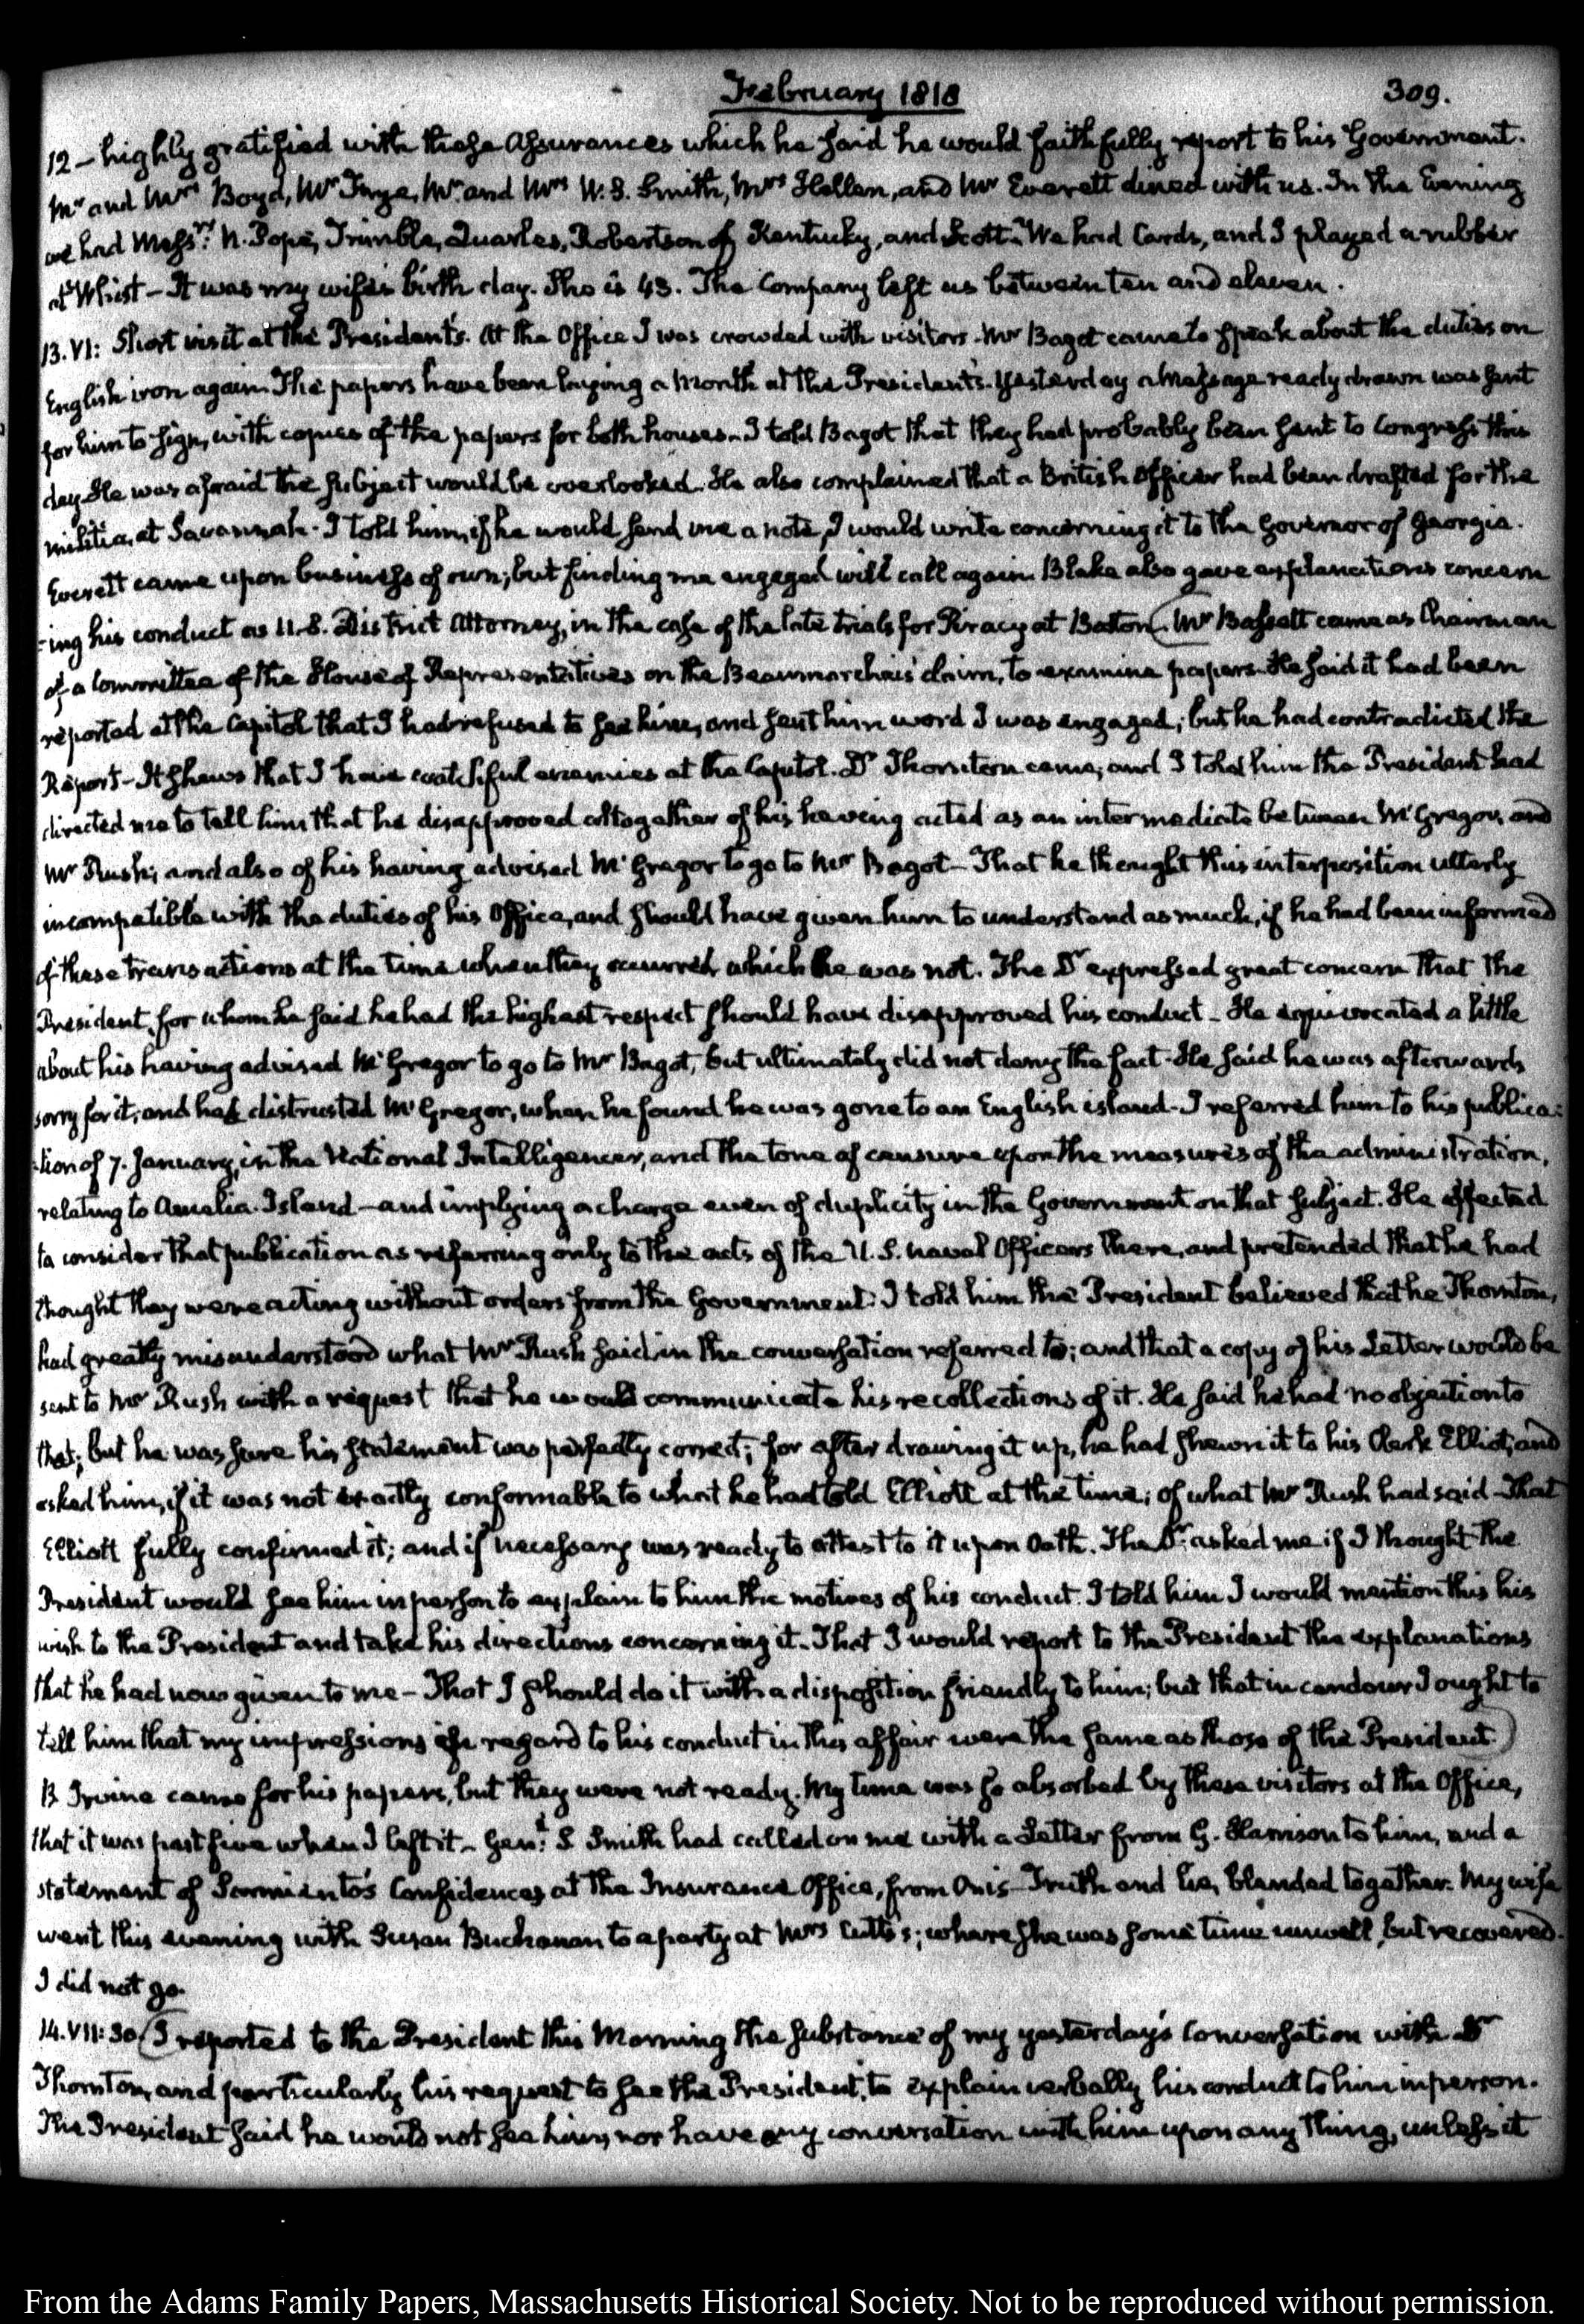 February 1818
309.
12 – highly gratified with these assurances which he said he would faithfully report to his Government.
Mr and Mrs Boyd, Mr Frye, Mr and Mrs W. S. Smith, Mrs Hellen, and Mr Everett dined with us. In the Evening
we had Messrs: N. Pope, Trimble, Quarles, Robertson of Kentucky, and Scott. We had Cards, and I played a rubber
at Whist – It was my wife's birth day. She is 43. The Company left us between ten and eleven.
13. VI: Short visit at the President's. At the Office I was crowded with visitors. Mr Bagot came to speak about the duties on
English iron again. The papers have been laying a Month at the President's. Yesterday a Message ready drawn was sent
for him to sign, with copies of the papers for both houses – I told Bagot that they had probably been sent to Congress this
day. He was afraid the subject would be overlooked. He also complained that a British Officer had been drafted for the
militia, at Savannah – I told him, if he would send me a note, I would write concerning it to the Governor of Georgia.
Everett came upon business of own; but finding me engaged will call again. Blake also gave explanations concern
-ing his conduct as U.S. District Attorney, in the case of the late trials for Piracy at Boston. (Mr Bassett came as Chairman
of a Committee of the House of Representatives on the Beaumarchais claim, to examine papers. He said it had been
reported at the Capitol that I had refused to see him, and sent him word I was engaged; but he had contradicted the
Report – It shews that I have watchful enemies at the Capitol. Dr Thornton came, and I told him the President had
directed me to tell him that he disapproved altogether of his having acted as an intermediate between McGregor, and
Mr Rush; and also of his having advised McGregor to go to Mr Bagot – That he thought this interposition utterly
incompatible with the duties of his Office, and should have given him to understand as much, if he had been informed
of these transactions at the time when they occurred which he was not. The Dr expressed great concern that the
President, for whom he said he had the highest respect should have disapproved his conduct – He equivocated a little
about his having advised McGregor to go to Mr Bagot, but ultimately did not deny the fact. He said he was afterwards
sorry for it, and had distrusted McGregor, when he found he was gone to an English island – I referred him to his publica-
-tion of 7. January, in the National Intelligencer, and the tone of censure upon the measures of the administration,
relating to Amelia Island – and implying a charge even of duplicity in the Government on that subject. He affected
to consider that publication as referring only to the acts of the U.S. naval Officers there, and pretended that he had
thought they were acting without orders from the Government. I told him the President believed that he Thornton,
had greatly misunderstood what Mr Rush said in the conversation referred to; and that a copy of his Letter would be
sent to Mr Rush with a request that he would communicate his recollections of it. He said he had no objection to
that; but he was sure his statement was perfectly correct; for after drawing it up, he had shewn it to his Clerk Elliot, and
asked him, if it was not exactly conformable to what he had told Elliott at the time; of what Mr Rush had said – That
Elliott fully confirmed it; and if necessary was ready to attest to it upon Oath. The Dr. asked me if I thought the
President would see him in person to explain to him the motives of his conduct. I told him I would mention this his
wish to the President and take his directions concerning it. That I would report to the President the explanations
that he had now given to me – That I should do it with a disposition friendly to him; but that in candour I ought to
tell him that my impressions in regard to his conduct in this affair were the same as those of the President.)
B Irvine came for his papers, but they were not ready. My time was so absorbed by these visitors at the Office,
that it was past five when I left it – Genl: S Smith had called on me with a Letter from G. Harrison to him, and a
statement of Sarmiento's Confidences at the Insurance Office, from Onis – Truth and lie, blended together. My wife
went this evening with Susan Buchanan to a party at Mrs Cutts's; where she was some time unwell, but recovered.
I did not go.
14. VII: 30. (I reported to the President this Morning the substance of my yesterday's Conversation with Dr
Thornton, and particularly his request to see the President, to explain verbally his conduct to him in person.
The President said he would not see him, nor have any conversation with him upon any thing, unless it
From the Adams Family Papers, Massachusetts Historical Society. Not to be reproduced without permission.